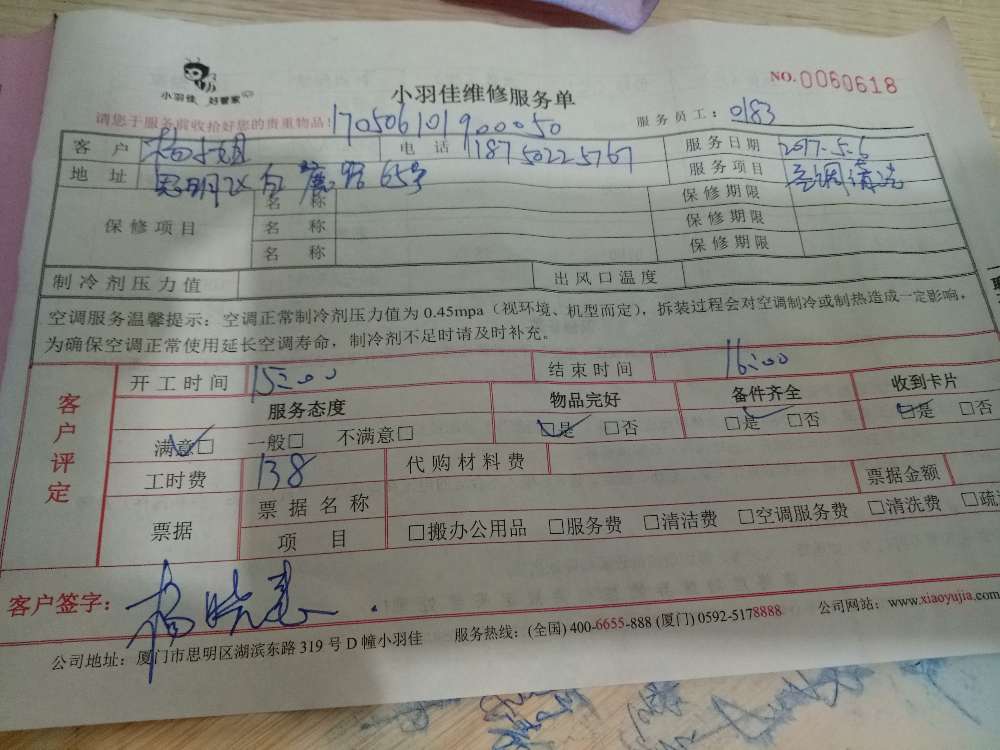 小羽佳 好管家
小羽佳维修服务单
NO.0060618
请您于服务前收拾好您的贵重物品!
17050610190050
服务员工: 0183
客 户 杨小姐 电 话 18750225767 服务日期 2017.5.6
地 址 思明区白鹭路65号 服务项目 空调清洗
保修项目
名 称 保修期限
名 称 保修期限
名 称 保修期限
制冷剂压力值 出风口温度
空调服务温馨提示:空调正常制冷剂压力值为 0.45mpa(视环境、机型而定),拆装过程会对空调制冷或制热造成一定影响,
为确保空调正常使用延长空调寿命,制冷剂不足时请及时补充。
客户评定
开工时间 15:00 结束时间 16:00
服务态度 物品完好 备件齐全 收到卡片
满意☑ 一般□ 不满意□ ☑是 □否 ☑是 □否 ☑是 □否
工时费 138 代购材料费
票据 票据名称 票据金额
项 目 □搬办公用品 □服务费 □清洁费 □空调服务费 □清洗费 □疏
客户签字:
公司地址:厦门市思明区湖滨东路 319 号 D 幢小羽佳 服务热线:(全国) 400-6655-888 (厦门) 0592-5178888 公司网站:www.xiaoyujia.com